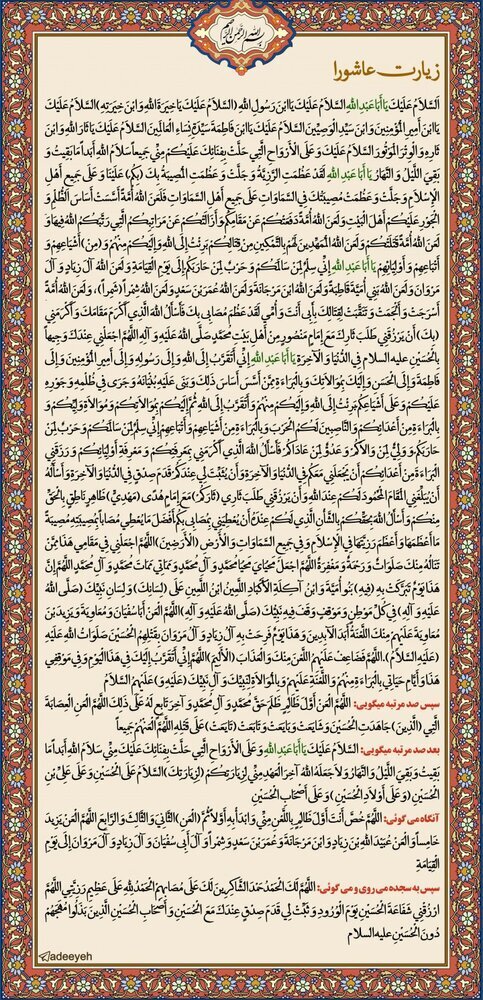 بسم الله الرحمن الرحیم
زیارت عاشورا
اَلسَّلامُ عَلَيْكَ يَا أَبَا عَبْدِ اللهِ السَّلامُ عَلَيْكَ يَا ابْنَ رَسُولِ اللهِ (السَّلامُ عَلَيْكَ يَا خِيَرَةَ اللهِ وَ ابْنَ خِيَرَتِهِ) السَّلامُ عَلَيْكَ
يَا ابْنَ أَمِيرِ الْمُؤْمِنِينَ وَ ابْنَ سَيِّدِ الْوَصِيِّينَ السَّلامُ عَلَيْكَ يَا ابْنَ فَاطِمَةَ سَيِّدَةِ نِسَاءِ الْعَالَمِينَ السَّلامُ عَلَيْكَ يَا ثَارَ اللهِ وَ ابْنَ
ثَارِهِ وَ الْوِتْرَ الْمَوْتُورَ السَّلامُ عَلَيْكَ وَ عَلَى الْأَرْوَاحِ الَّتِي حَلَّتْ بِفِنَائِكَ عَلَيْكُمْ مِنِّي جَمِيعاً سَلامُ اللهِ أَبَداً مَا بَقِيتُ وَ
بَقِيَ اللَّيْلُ وَ النَّهَارُ يَا أَبَا عَبْدِ اللهِ لَقَدْ عَظُمَتِ الرَّزِيَّةُ وَ جَلَّتْ وَ عَظُمَتِ الْمُصِيبَةُ بِكَ (بِكُمْ) عَلَيْنَا وَ عَلَى جَمِيعِ أَهْلِ
الْإِسْلامِ وَ جَلَّتْ وَ عَظُمَتْ مُصِيبَتُكَ فِي السَّمَاوَاتِ عَلَى جَمِيعِ أَهْلِ السَّمَاوَاتِ فَلَعَنَ اللهُ أُمَّةً أَسَّسَتْ أَسَاسَ الظُّلْمِ وَ
الْجَوْرِ عَلَيْكُمْ أَهْلَ الْبَيْتِ وَ لَعَنَ اللهُ أُمَّةً دَفَعَتْكُمْ عَنْ مَقَامِكُمْ وَ أَزَالَتْكُمْ عَنْ مَرَاتِبِكُمُ الَّتِي رَتَّبَكُمُ اللهُ فِيهَا وَ
لَعَنَ اللهُ أُمَّةً قَتَلَتْكُمْ وَ لَعَنَ اللهُ الْمُمَهِّدِينَ لَهُمْ بِالتَّمْكِينِ مِنْ قِتَالِكُمْ بَرِئْتُ إِلَى اللهِ وَ إِلَيْكُمْ مِنْهُمْ وَ (مِنْ) أَشْيَاعِهِمْ وَ
أَتْبَاعِهِمْ وَ أَوْلِيَائِهِمْ يَا أَبَا عَبْدِ اللهِ إِنِّي سِلْمٌ لِمَنْ سَالَمَكُمْ وَ حَرْبٌ لِمَنْ حَارَبَكُمْ إِلَى يَوْمِ الْقِيَامَةِ وَ لَعَنَ اللهُ آلَ زِيَادٍ وَ آلَ
مَرْوَانَ وَ لَعَنَ اللهُ بَنِي أُمَيَّةَ قَاطِبَةً وَ لَعَنَ اللهُ ابْنَ مَرْجَانَةَ وَ لَعَنَ اللهُ عُمَرَ بْنَ سَعْدٍ وَ لَعَنَ اللهُ شِمْراً (شَمِراً)، وَ لَعَنَ اللهُ أُمَّةً
أَسْرَجَتْ وَ أَلْجَمَتْ وَ تَنَقَّبَتْ لِقِتَالِكَ بِأَبِي أَنْتَ وَ أُمِّي لَقَدْ عَظُمَ مُصَابِي بِكَ فَأَسْأَلُ اللهَ الَّذِي أَكْرَمَ مَقَامَكَ وَ أَكْرَمَنِي
(بِكَ) أَنْ يَرْزُقَنِي طَلَبَ ثَارِكَ مَعَ إِمَامٍ مَنْصُورٍ مِنْ أَهْلِ بَيْتِ مُحَمَّدٍ صَلَّى اللهُ عَلَيْهِ وَ آلِهِ اللَّهُمَّ اجْعَلْنِي عِنْدَكَ وَجِيهاً
بِالْحُسَيْنِ عليه السلام فِي الدُّنْيَا وَ الْآخِرَةِ يَا أَبَا عَبْدِ اللهِ إِنِّي أَتَقَرَّبُ إِلَى اللهِ وَ إِلَى رَسُولِهِ وَ إِلَى أَمِيرِ الْمُؤْمِنِينَ وَ إِلَى
فَاطِمَةَ وَ إِلَى الْحَسَنِ وَ إِلَيْكَ بِمُوَالاتِكَ وَ بِالْبَرَاءَةِ مِمَّنْ أَسَّسَ أَسَاسَ ذَلِكَ وَ بَنَى عَلَيْهِ بُنْيَانَهُ وَ جَرَى فِي ظُلْمِهِ وَ جَوْرِهِ
عَلَيْكُمْ وَ عَلَى أَشْيَاعِكُمْ بَرِئْتُ إِلَى اللهِ وَ إِلَيْكُمْ مِنْهُمْ وَ أَتَقَرَّبُ إِلَى اللهِ ثُمَّ إِلَيْكُمْ بِمُوَالاتِكُمْ وَ مُوَالاةِ وَلِيِّكُمْ وَ
بِالْبَرَاءَةِ مِنْ أَعْدَائِكُمْ وَ النَّاصِبِينَ لَكُمُ الْحَرْبَ وَ بِالْبَرَاءَةِ مِنْ أَشْيَاعِهِمْ وَ أَتْبَاعِهِمْ إِنِّي سِلْمٌ لِمَنْ سَالَمَكُمْ وَ حَرْبٌ لِمَنْ
حَارَبَكُمْ وَ وَلِيٌّ لِمَنْ وَالاكُمْ وَ عَدُوٌّ لِمَنْ عَادَاكُمْ فَأَسْأَلُ اللهَ الَّذِي أَكْرَمَنِي بِمَعْرِفَتِكُمْ وَ مَعْرِفَةِ أَوْلِيَائِكُمْ وَ رَزَقَنِي
الْبَرَاءَةَ مِنْ أَعْدَائِكُمْ أَنْ يَجْعَلَنِي مَعَكُمْ فِي الدُّنْيَا وَ الْآخِرَةِ وَ أَنْ يُثَبِّتَ لِي عِنْدَكُمْ قَدَمَ صِدْقٍ فِي الدُّنْيَا وَ الْآخِرَةِ وَ أَسْأَلُهُ
أَنْ يُبَلِّغَنِي الْمَقَامَ الْمَحْمُودَ لَكُمْ عِنْدَ اللهِ وَ أَنْ يَرْزُقَنِي طَلَبَ ثَارِي (ثَارِكُمْ) مَعَ إِمَامِ هُدًى (مَهْدِيٍّ) ظَاهِرٍ نَاطِقٍ بِالْحَقِّ
مِنْكُمْ وَ أَسْأَلُ اللهَ بِحَقِّكُمْ وَ بِالشَّأْنِ الَّذِي لَكُمْ عِنْدَهُ أَنْ يُعْطِيَنِي بِمُصَابِي بِكُمْ أَفْضَلَ مَا يُعْطِي مُصَاباً بِمُصِيبَتِهِ مُصِيبَةً
مَا أَعْظَمَهَا وَ أَعْظَمَ رَزِيَّتَهَا فِي الْإِسْلامِ وَ فِي جَمِيعِ السَّمَاوَاتِ وَ الْأَرْضِ (الْأَرَضِينَ) اللَّهُمَّ اجْعَلْنِي فِي مَقَامِي هَذَا مِمَّنْ
تَنَالُهُ مِنْكَ صَلَوَاتٌ وَ رَحْمَةٌ وَ مَغْفِرَةٌ اللَّهُمَّ اجْعَلْ مَحْيَايَ مَحْيَا مُحَمَّدٍ وَ آلِ مُحَمَّدٍ وَ مَمَاتِي مَمَاتَ مُحَمَّدٍ وَ آلِ مُحَمَّدٍ اللَّهُمَّ إِنَّ
هَذَا يَوْمٌ تَبَرَّكَتْ بِهِ (فِيهِ) بَنُو أُمَيَّةَ وَ ابْنُ آكِلَةِ الْأَكْبَادِ اللَّعِينُ ابْنُ اللَّعِينِ عَلَى (لِسَانِكَ) وَ لِسَانِ نَبِيِّكَ (صَلَّى اللهُ
عَلَيْهِ وَ آلِهِ) فِي كُلِّ مَوْطِنٍ وَ مَوْقِفٍ وَقَفَ فِيهِ نَبِيُّكَ (صَلَّى اللهُ عَلَيْهِ وَ آلِهِ) اللَّهُمَّ الْعَنْ أَبَا سُفْيَانَ وَ مُعَاوِيَةَ وَ يَزِيدَ بْنَ
مُعَاوِيَةَ عَلَيْهِمْ مِنْكَ اللَّعْنَةُ أَبَدَ الْآبِدِينَ وَ هَذَا يَوْمٌ فَرِحَتْ بِهِ آلُ زِيَادٍ وَ آلُ مَرْوَانَ بِقَتْلِهِمُ الْحُسَيْنَ صَلَوَاتُ اللهِ عَلَيْهِ
(عَلَيْهِ السَّلامُ). اللَّهُمَّ فَضَاعِفْ عَلَيْهِمُ اللَّعْنَ مِنْكَ وَ الْعَذَابَ (الْأَلِيمَ) اللَّهُمَّ إِنِّي أَتَقَرَّبُ إِلَيْكَ فِي هَذَا الْيَوْمِ وَ فِي مَوْقِفِي
هَذَا وَ أَيَّامِ حَيَاتِي بِالْبَرَاءَةِ مِنْهُمْ وَ اللَّعْنَةِ عَلَيْهِمْ وَ بِالْمُوَالاةِ لِنَبِيِّكَ وَ آلِ نَبِيِّكَ (عَلَيْهِ وَ) عَلَيْهِمُ السَّلامُ
سپس صد مرتبه میگویی: اللَّهُمَّ الْعَنْ أَوَّلَ ظَالِمٍ ظَلَمَ حَقَّ مُحَمَّدٍ وَ آلِ مُحَمَّدٍ وَ آخِرَ تَابِعٍ لَهُ عَلَى ذَلِكَ اللَّهُمَّ الْعَنِ الْعِصَابَةَ
الَّتِي (الَّذِينَ) جَاهَدَتِ الْحُسَيْنَ وَ شَايَعَتْ وَ بَايَعَتْ وَ تَابَعَتْ (تَايَعَتْ) عَلَى قَتْلِهِ اللَّهُمَّ الْعَنْهُمْ جَمِيعاً
بعد صد مرتبه میگویی: السَّلامُ عَلَيْكَ يَا أَبَا عَبْدِ اللهِ وَ عَلَى الْأَرْوَاحِ الَّتِي حَلَّتْ بِفِنَائِكَ عَلَيْكَ مِنِّي سَلامُ اللهِ أَبَداً مَا
بَقِيتُ وَ بَقِيَ اللَّيْلُ وَ النَّهَارُ وَ لا جَعَلَهُ اللهُ آخِرَ الْعَهْدِ مِنِّي لِزِيَارَتِكُمْ (لِزِيَارَتِكَ) السَّلامُ عَلَى الْحُسَيْنِ وَ عَلَى عَلِيِّ بْنِ
الْحُسَيْنِ (وَ عَلَى أَوْلادِ الْحُسَيْنِ) وَ عَلَى أَصْحَابِ الْحُسَيْنِ
آنگاه می گوئی: اللَّهُمَّ خُصَّ أَنْتَ أَوَّلَ ظَالِمٍ بِاللَّعْنِ مِنِّي وَ ابْدَأْ بِهِ أَوَّلاً ثُمَّ (الْعَنِ) الثَّانِيَ وَ الثَّالِثَ وَ الرَّابِعَ اللَّهُمَّ الْعَنْ يَزِيدَ
خَامِساً وَ الْعَنْ عُبَيْدَ اللهِ بْنَ زِيَادٍ وَ ابْنَ مَرْجَانَةَ وَ عُمَرَ بْنَ سَعْدٍ وَ شِمْراً وَ آلَ أَبِي سُفْيَانَ وَ آلَ زِيَادٍ وَ آلَ مَرْوَانَ إِلَى يَوْمِ
الْقِيَامَةِ
سپس به سجده می روی و می گوئی: اللَّهُمَّ لَكَ الْحَمْدُ حَمْدَ الشَّاكِرِينَ لَكَ عَلَى مُصَابِهِمُ الْحَمْدُ لِلهِ عَلَى عَظِيمِ رَزِيَّتِي اللَّهُمَّ
ارْزُقْنِي شَفَاعَةَ الْحُسَيْنِ يَوْمَ الْوُرُودِ وَ ثَبِّتْ لِي قَدَمَ صِدْقٍ عِنْدَكَ مَعَ الْحُسَيْنِ وَ أَصْحَابِ الْحُسَيْنِ الَّذِينَ بَذَلُوا مُهَجَهُمْ
دُونَ الْحُسَيْنِ علیه السلام
adeeyeh